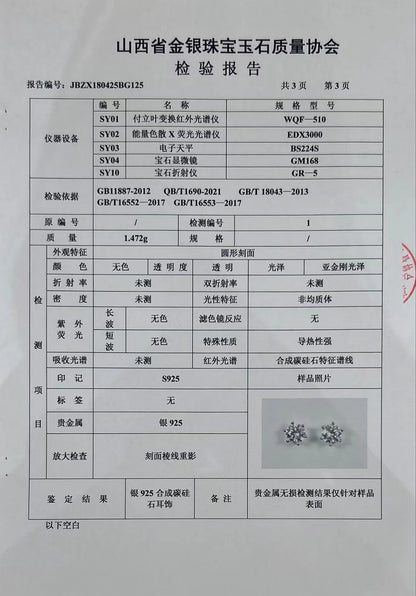 山西省金银珠宝玉石质量协会
检 验 报 告
报告编号: JBZX180425BG125 共 3 页 第 3 页
仪器设备
编 号 名 称 规 格 型 号
SY01 付立叶变换红外光谱仪 WQF—510
SY02 能量色散 X 荧光光谱仪 EDX3000
SY03 电子天平 BS224S
SY04 宝石显微镜 GM168
SY10 宝石折射仪 GR—5
检验依据
GB11887-2012 QB/T1690-2021 GB/T 18043—2013
GB/T16552—2017 GB/T16553—2017
原 编 号 / 检测编号 1
质 量 1.472g 规 格 /
检测项目
外观特征 圆形刻面
颜 色 无色 透 明 度 透明 光泽 亚金刚光泽
折 射 率 未测 双折射率 未测
密 度 未测 光性特征 非均质体
紫 外 荧 光 长波 无色 滤色镜反应 无
短波 无色 特殊性质 导热性强
吸收光谱 未测 红外光谱 合成碳硅石特征谱线
印 记 S925 样品照片
标 签 无
贵金属 银 925
放大检查 刻面棱线重影
鉴 定 结 果 银 925 合成碳硅石耳饰 备 注 贵金属无损检测结果仅针对样品表面
以下空白